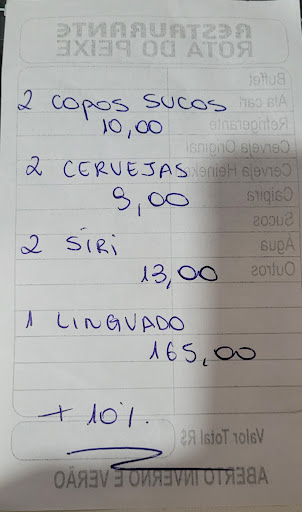 RESTAURANTE
ROTA DO PEIXE
Buffet
2 COPOS SUCOS
Ala cart
10,00
Refrigerante
Cerveja Original
2 CERVEJAS
Cerveja Heineke
9,00
Caipira
Sucos
2 SIRI
Água
13,00
Outros
1 LINGUADO
165,00
+ 10%.
Valor Total R$
ABERTO INVERNO E VERÃO